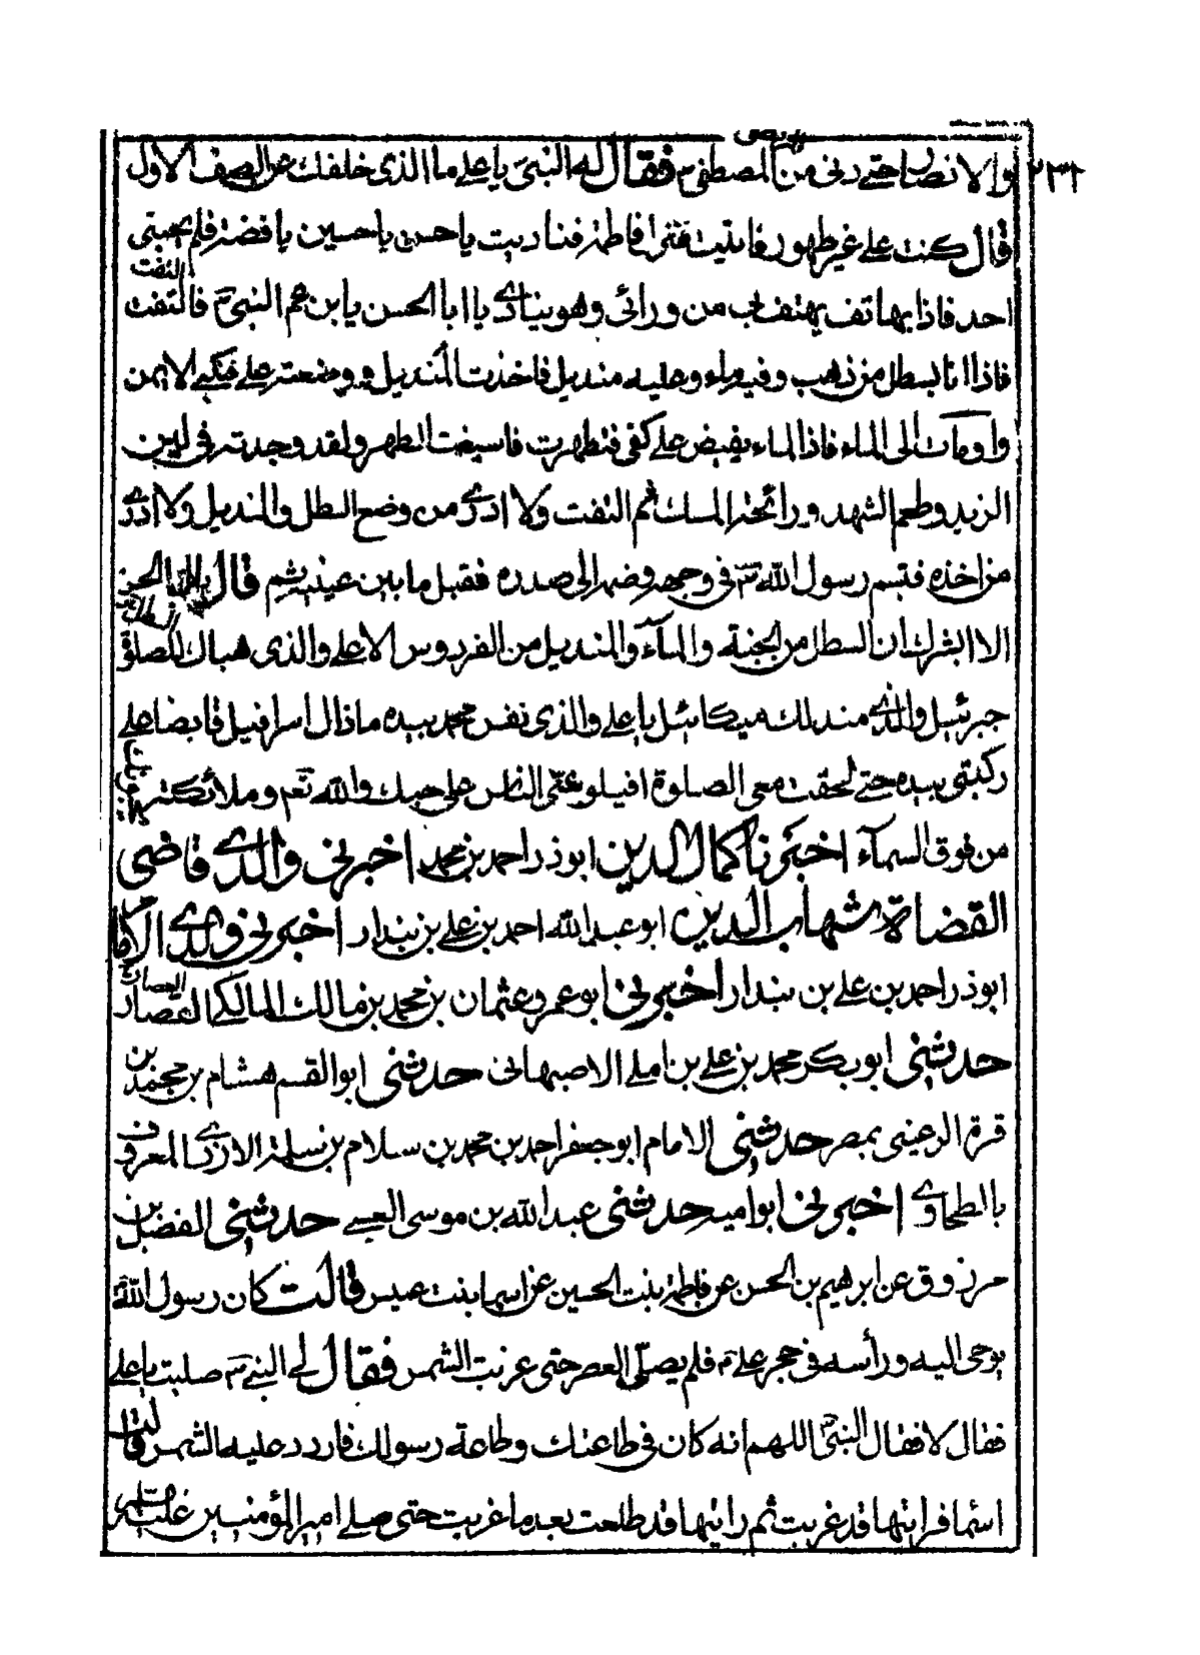 والانصار حتى دنى من المصطفى فقال له النبى يا على ما الذى خلفك عن الصف الاول
٢٣٢
قال كنت على غير طهور فاتيت منزل فاطمة فناديت يا حسن يا حسين يا فضة فلم يجبنى
احد فاذا بهاتف يهتف بى من ورائى وهو ينادى يا ابا الحسن يا بن عم النبى فالتفت
التفت
فاذا انا بسطل من ذهب وفيه ماء وعليه منديل فاخذت المنديل ووضعته على منكبى الايمن
واومات الى الماء فاذا الماء يفيض على كفى فتطهرت فاسبغت الطهر ولقد وجدته فى لين
الزبد وطعم الشهد ورائحة المسك ثم التفت ولا ادرى من وضع السطل والمنديل ولا ادرى
من اخذه فتبسم رسول الله فى وجهه وضمه الى صدره فقبل ما بين عينيه ثم قال يا ابا الحسن
الا ابشرك ان السطل من الجنة والماء والمنديل من الفردوس الاعلى والذى هياك للصلوة
جبرئيل والذى مندلك ميكائيل يا على والذى نفس محمد بيده ما زال اسرافيل قابضا على
ركبتى بيده حتى لحقت معى الصلوة افيلومنى الناس على حبك والله تعم وملائكته يحبونك
من فوق السمآء اخبرنا كمال الدين ابو ذر احمد بن محمد اخبرنى والدى قاضى
القضاة شهاب الدين ابو عبد الله احمد بن على بن بندار اخبرنى والدى الامام
ابو ذر احمد بن على بن بندار اخبرنى ابو عمرو عثمان بن محمد بن مالك المالكى القصار
حدثنى ابو بكر محمد بن على بن املى الاصبهانى حدثنى ابو القسم هشام بن محمد بن
قرة الرعينى بمصر حدثنى الامام ابو جعفر احمد بن محمد بن سلام بن سلمة الازدى المعروف
بالطحاوى اخبرنى ابو اميه حدثنى عبد الله بن موسى العبسى حدثنى الفضل بن
مرزوق عن ابرهيم بن الحسن عن فاطمة بنت الحسين عن اسما بنت عميس قالت كان رسول الله
يوحى اليه وراسه فى حجر على فلم يصلى العصر حتى غربت الشمس فقال له النبى صليت يا على
فقال لا فقال النبى اللهم انه كان فى طاعتك وطاعة رسولك فاردد عليه الشمس قالت
اسما فرايتها قد غربت ثم رايتها قد طلعت بعد ما غربت حتى صلى امير المؤمنين